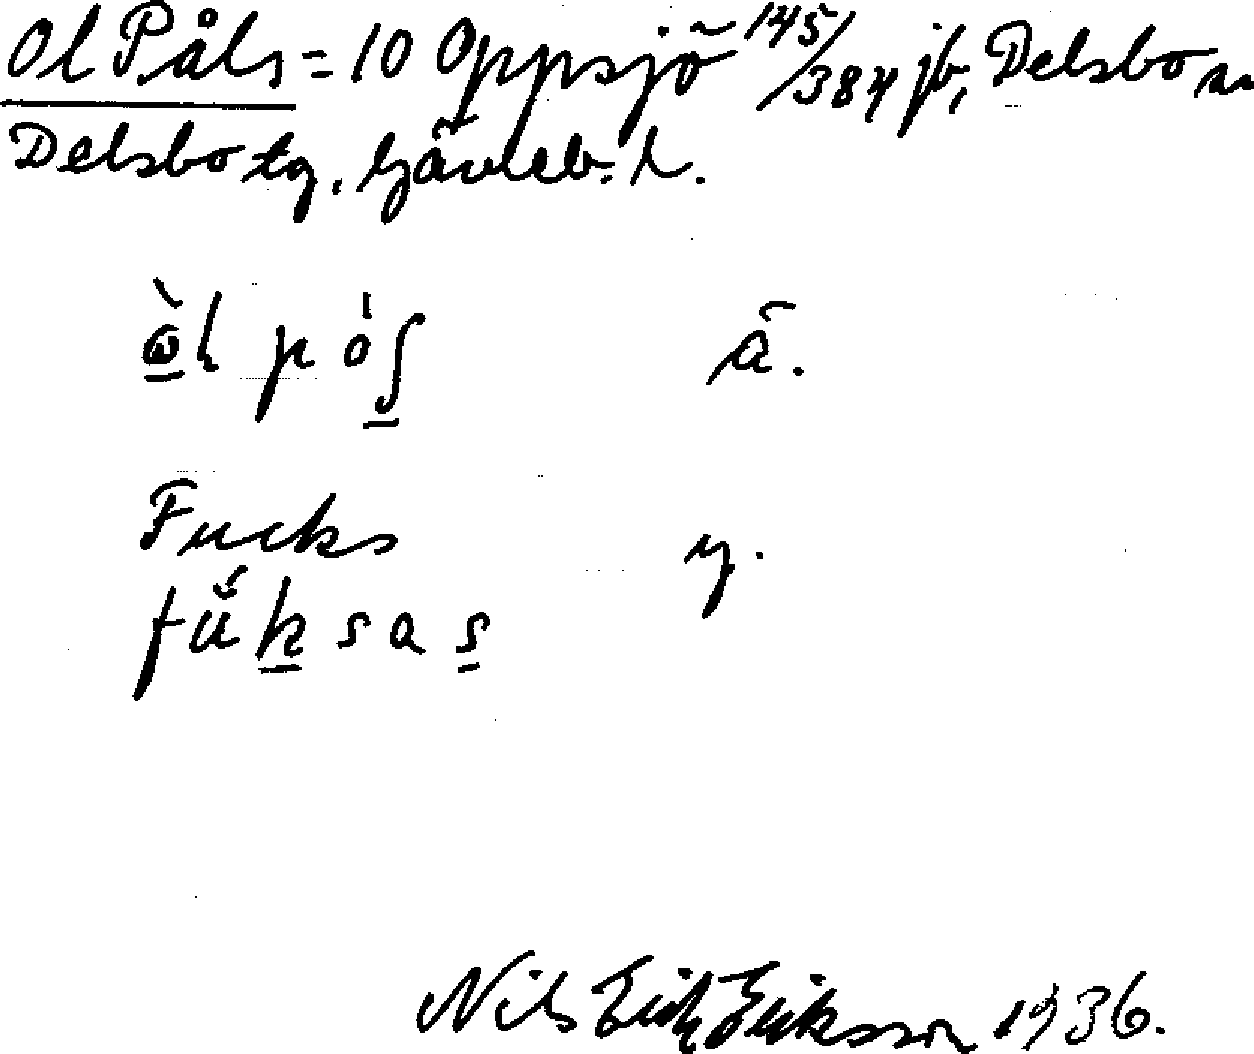 Ol Påls = 10 Oppsjö 145/384 jb, Delsbo sn
Delsbo tg. Gävleb. l.
ὼl pós ä.
Fucks y.
fúksas
Nils Erik Eriksson 1936.